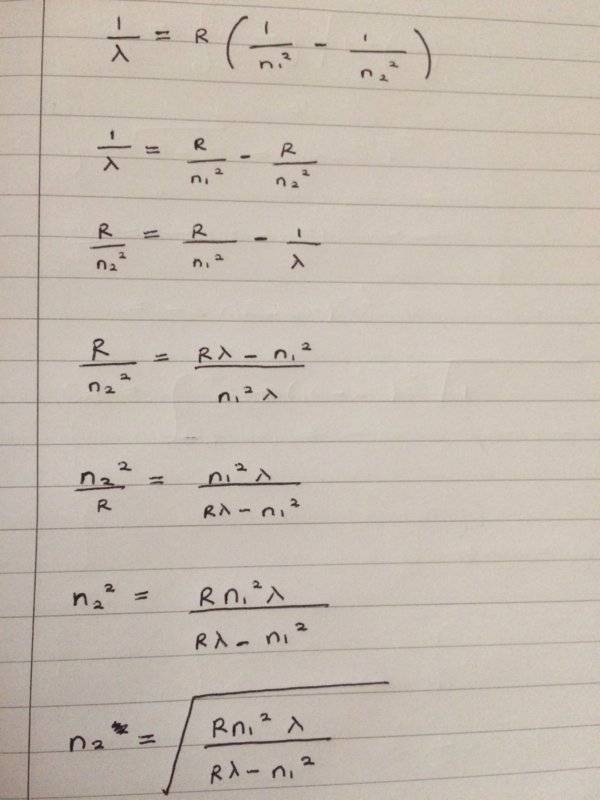 1/λ = R (1/n₁² - 1/n₂²)
1/λ = R/n₁² - R/n₂²
R/n₂² = R/n₁² - 1/λ
R/n₂² = (Rλ - n₁²)/(n₁²λ)
n₂²/R = (n₁²λ)/(Rλ - n₁²)
n₂² = (Rn₁²λ)/(Rλ - n₁²)
n₂ = √((Rn₁²λ)/(Rλ - n₁²))